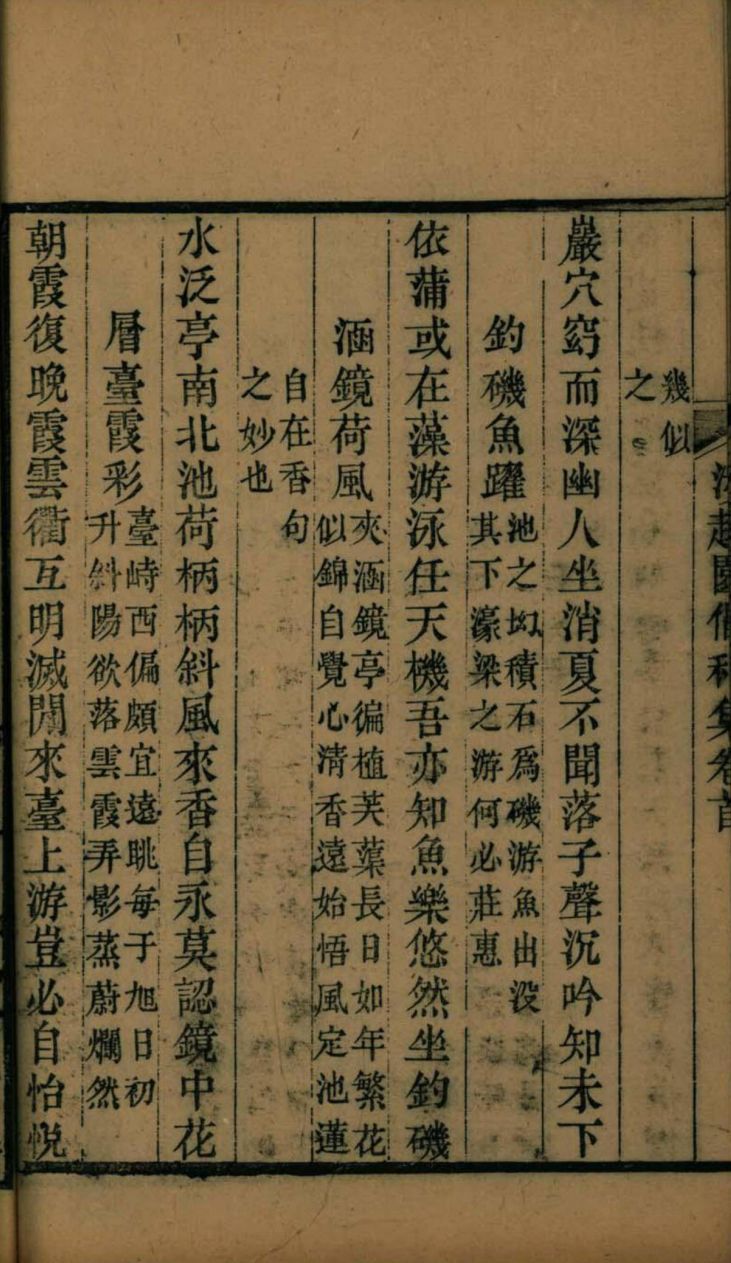 園倡和集卷首
幾似
之
巖穴窈而深幽人坐消夏不聞落子聲沉吟知未下
釣磯魚躍
池之坳積石爲磯游魚出没
其下濠梁之游何必莊惠
依蒲或在藻游泳任天機吾亦知魚樂悠然坐釣磯
涵鏡荷風
夾涵鏡亭徧植芙蕖長日如年繁花
似錦自覺心清香遠始悟風定池蓮
自在香句
之妙也
水泛亭南北池荷柄柄斜風來香自永莫認鏡中花
層臺霞彩
臺峙西偏頗宜遠眺每于旭日初
升斜陽欲落雲霞弄影蒸蔚爛然
朝霞復晚霞雲衢互明滅閒來臺上游豈必自怡悅